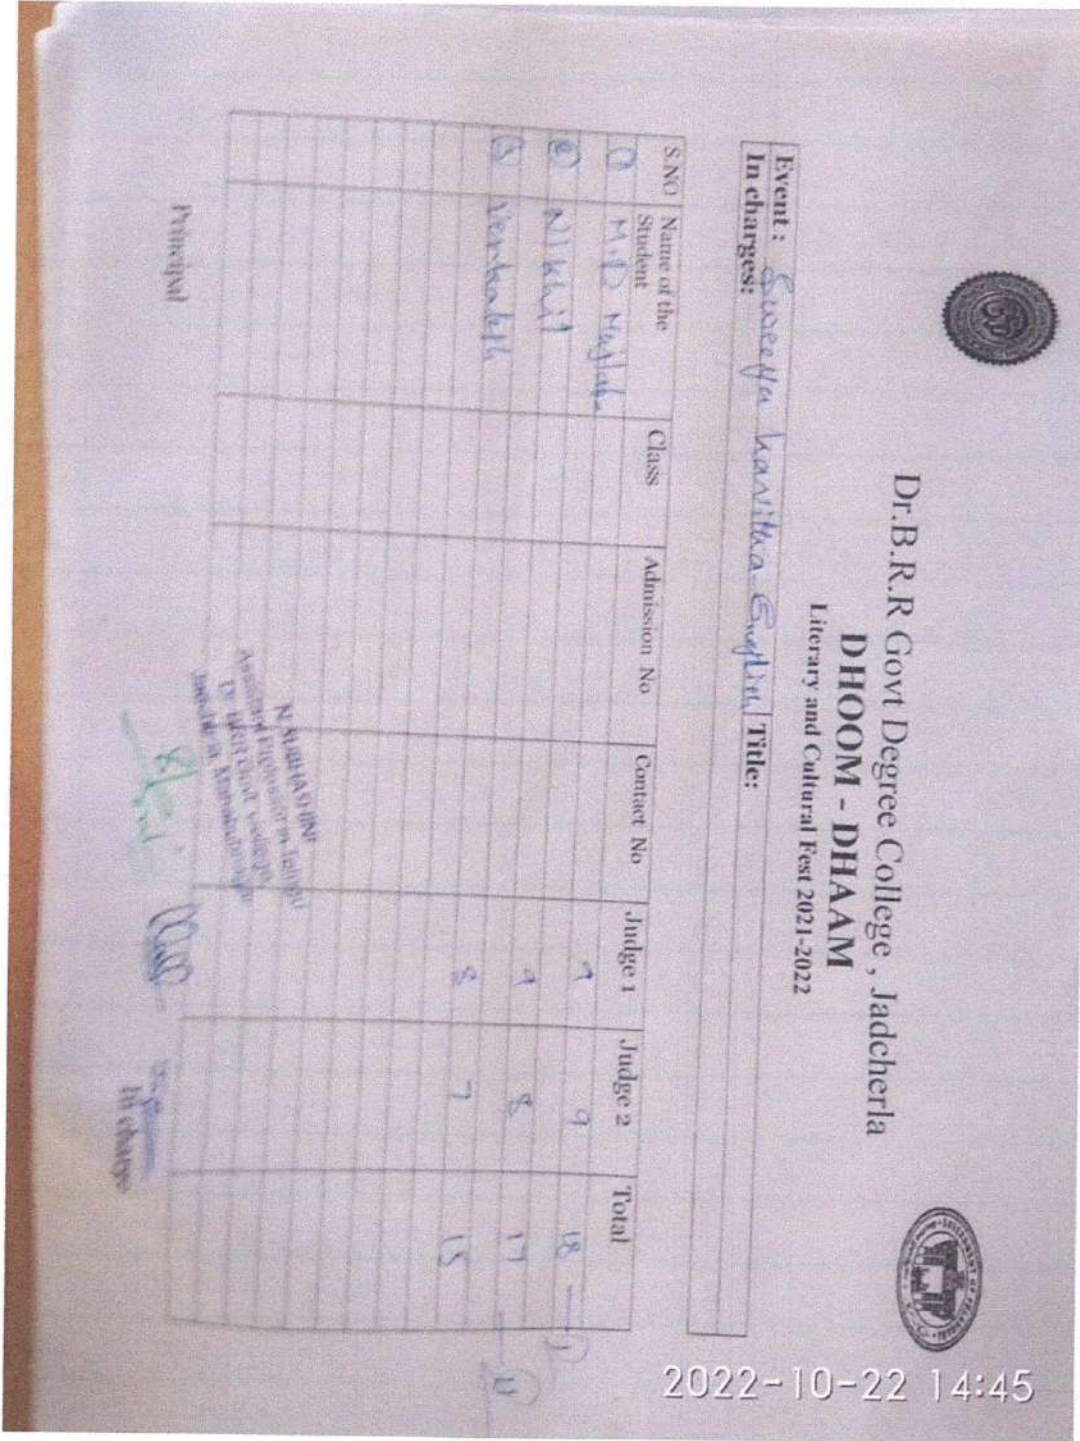 Dr.B.R.R Govt Degree College , Jadcherla
DHOOM - DHAAM
Literary and Cultural Fest 2021-2022
Event : Sweeya kavitha - English Title:
In charges:
S.NO Name of the Student Class Admission No Contact No Judge 1 Judge 2 Total
1 M.D 9 9 18 — I
2 Nikhil 9 8 17 — II
3 Venkatesh 8 7 15
N. SUBHASHINI
Assistant Professor in Telugu
Dr. BRR Govt College
Jadcherla, Mahabubnagar
Principal
In charge
2022-10-22 14:45